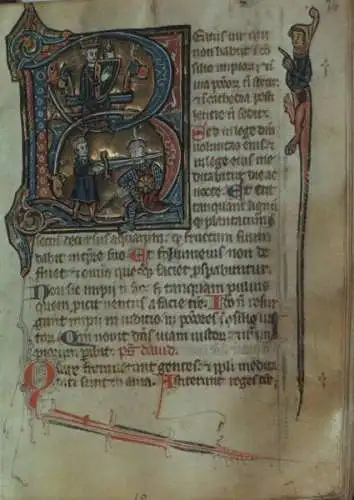 Beatus vir qui
non habiit i co
silio impior & i
uia pctor n stetit
& i cathedra pesti
lentie n sedit
Sed in lege dni
uoluntas eius &
in lege eius me
ditabitur die ac
nocte Et erit
tanquam lignu
qd plantatum
secus decursus aquarum qd fructum suum
dabit in tpre suo Et folium eius non de
fluet & omia quecuq faciet pspabuntur
Non sic impii n sic & tanquam puluis
quem picit uentus a facie tre Ido n resur
gunt impii in iuditio n pctores i osilio ius
tor Qm nouit dns uiam iustor & iter im
piorum pibit ps dauid
Quare fremuerunt gentes & ppli medita
ti sunt inania Astiterunt reges tre